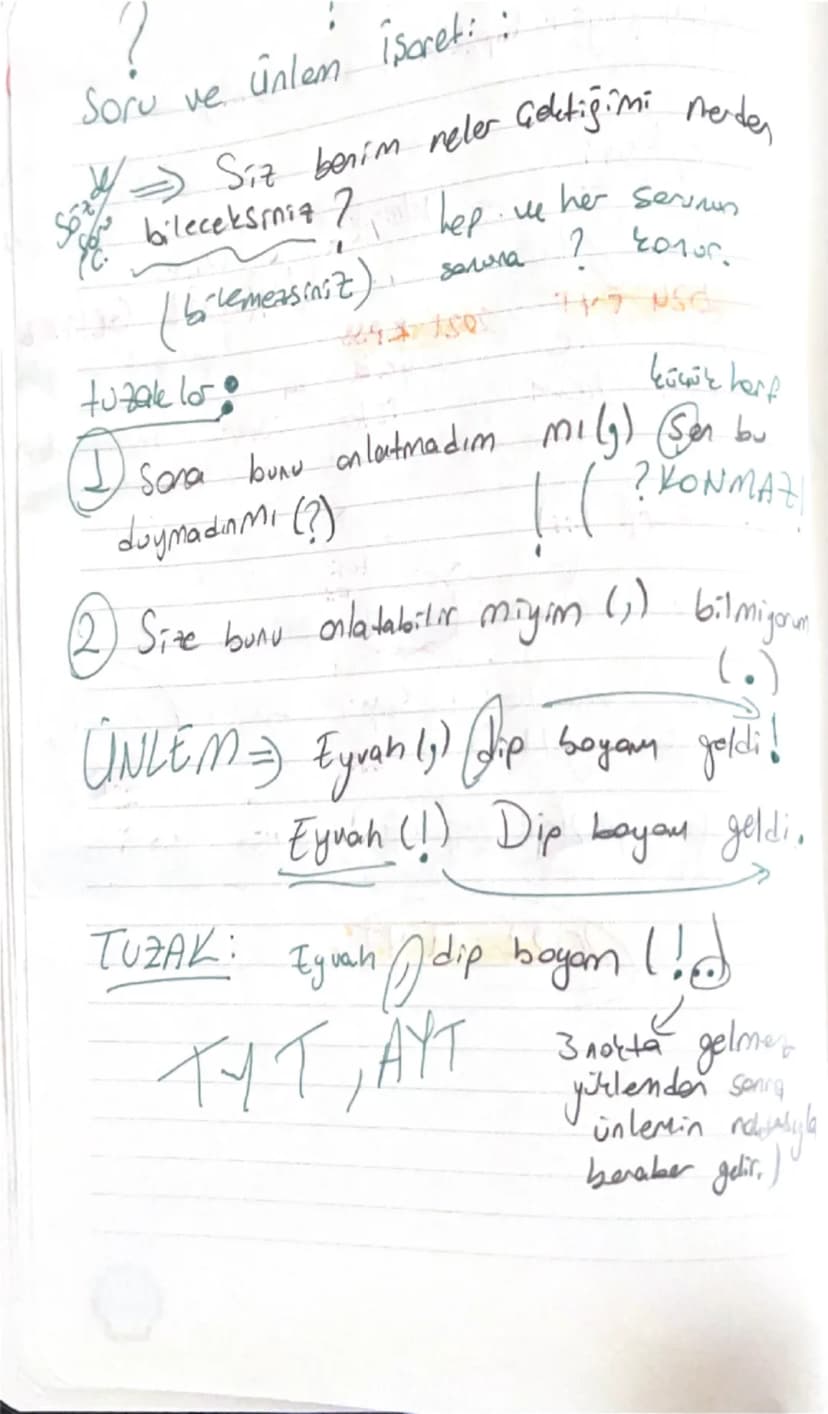 ? !
Soru ve Ünlem işareti :
⇒ Siz benim neler çektiğimi nerden
bileceksiniz ? hep ve her sorunun
(bilemezsiniz) sonuna ? konur.
tuzaklar:
küçük harf
1 Sana bunu anlatmadım mı (,) sen bu
? KONMAZ!
duymadın mı (?)
2 Size bunu anlatabilir miyim (,) bilmiyorum
(.)
ÜNLEM ⇒ Eyvah (,) dip boyam geldi!
Eyvah (!) Dip boyam geldi.
TUZAK: Eyvah (,) dip boyam (!..)
TYT, AYT
3 nokta gelmez
yüklemden sonra
ünlemin noktasıyla
beraber gelir.)